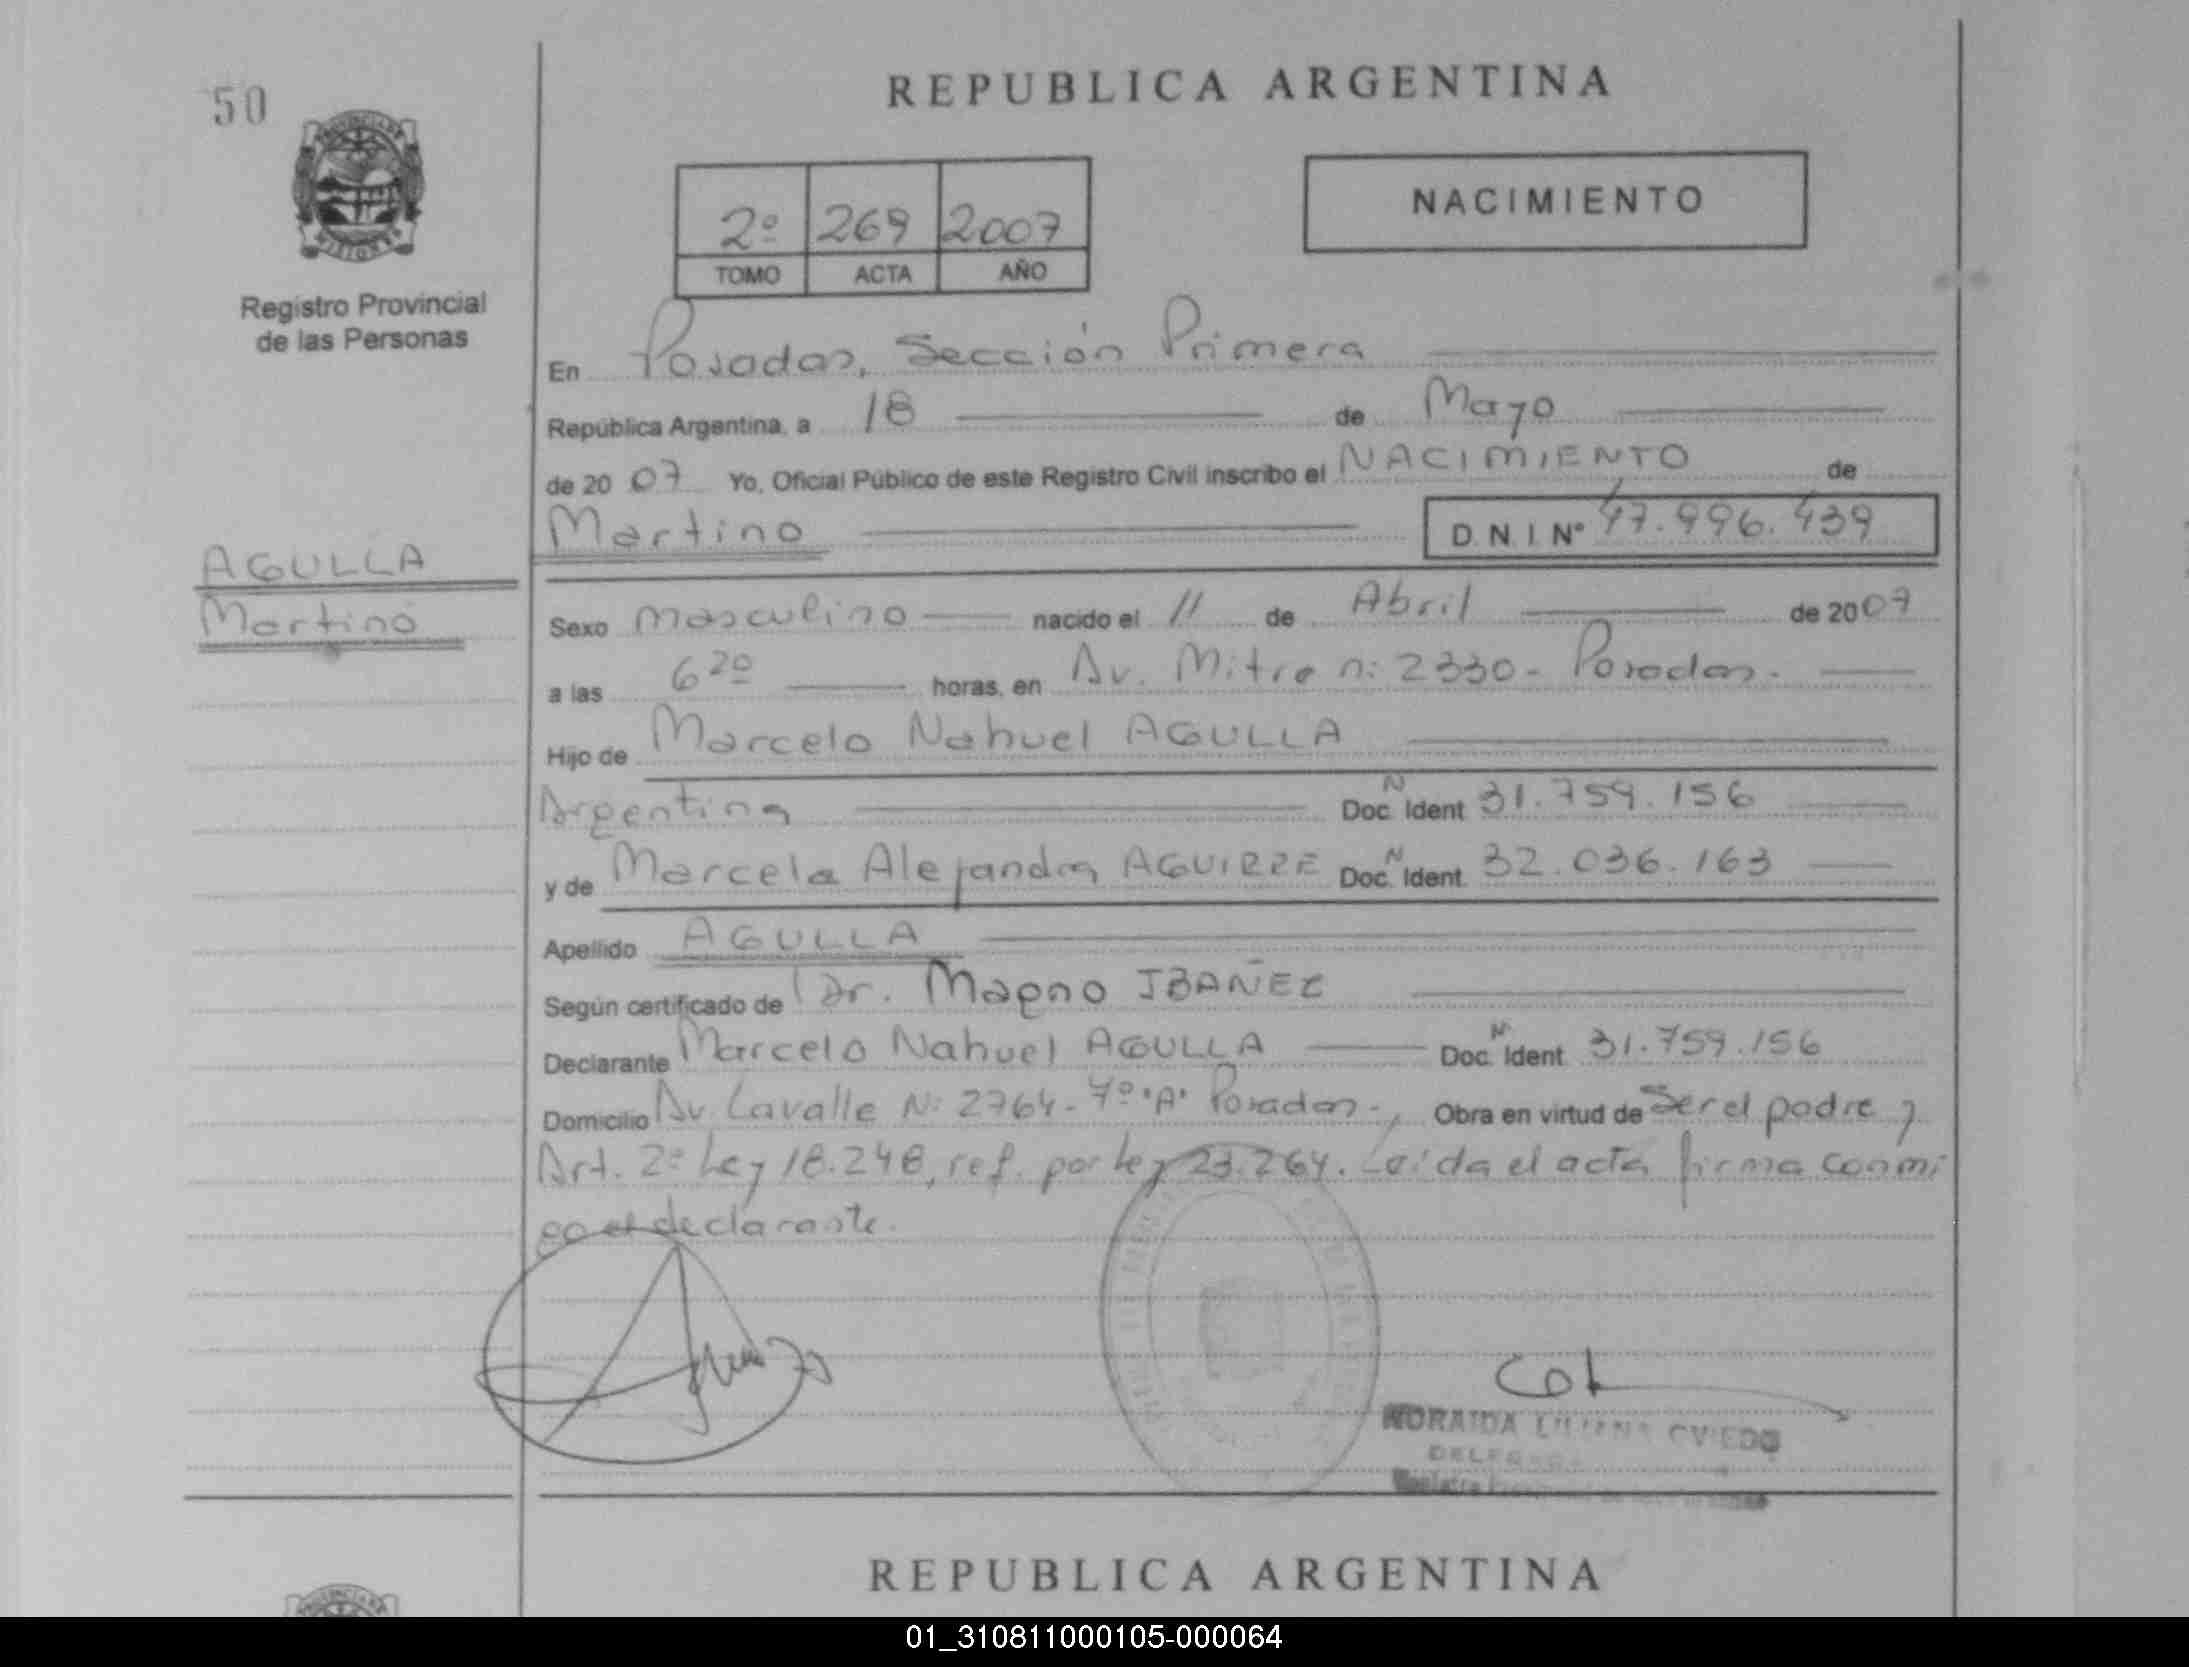 50
REPUBLICA ARGENTINA
NACIMIENTO
2º 269 2007
TOMO ACTA AÑO
Registro Provincial
de las Personas
En Posadas, Sección Primera
República Argentina, a 18 de Mayo
de 2007 Yo, Oficial Público de este Registro Civil inscribo el NACIMIENTO de
Martino D.N.I. Nº 47.996.439
AGULLA
Martino
Sexo masculino nacido el 11 de Abril de 2007
a las 6 20 horas, en Av. Mitre n: 2330 - Posadas.
Hijo de Marcelo Nahuel AGULLA
Argentina Doc. N Ident 31.759.156
y de Marcela Alejandra AGUIRRE Doc. N Ident. 32.036.163
Apellido AGULLA
Según certificado de Dr. Magno IBAÑEZ
Declarante Marcelo Nahuel AGULLA Doc. N Ident 31.759.156
Domicilio Av. Lavalle N: 2764 - 7º "A" Posadas -, Obra en virtud de Ser el padre y
Art. 2º Ley 18.248, ref. por Ley 23.264. Leída el acta firma conmi
go el declarante.
NORAIDA LILIANA OVIEDO
DELEGADA
REPUBLICA ARGENTINA
01_310811000105-000064